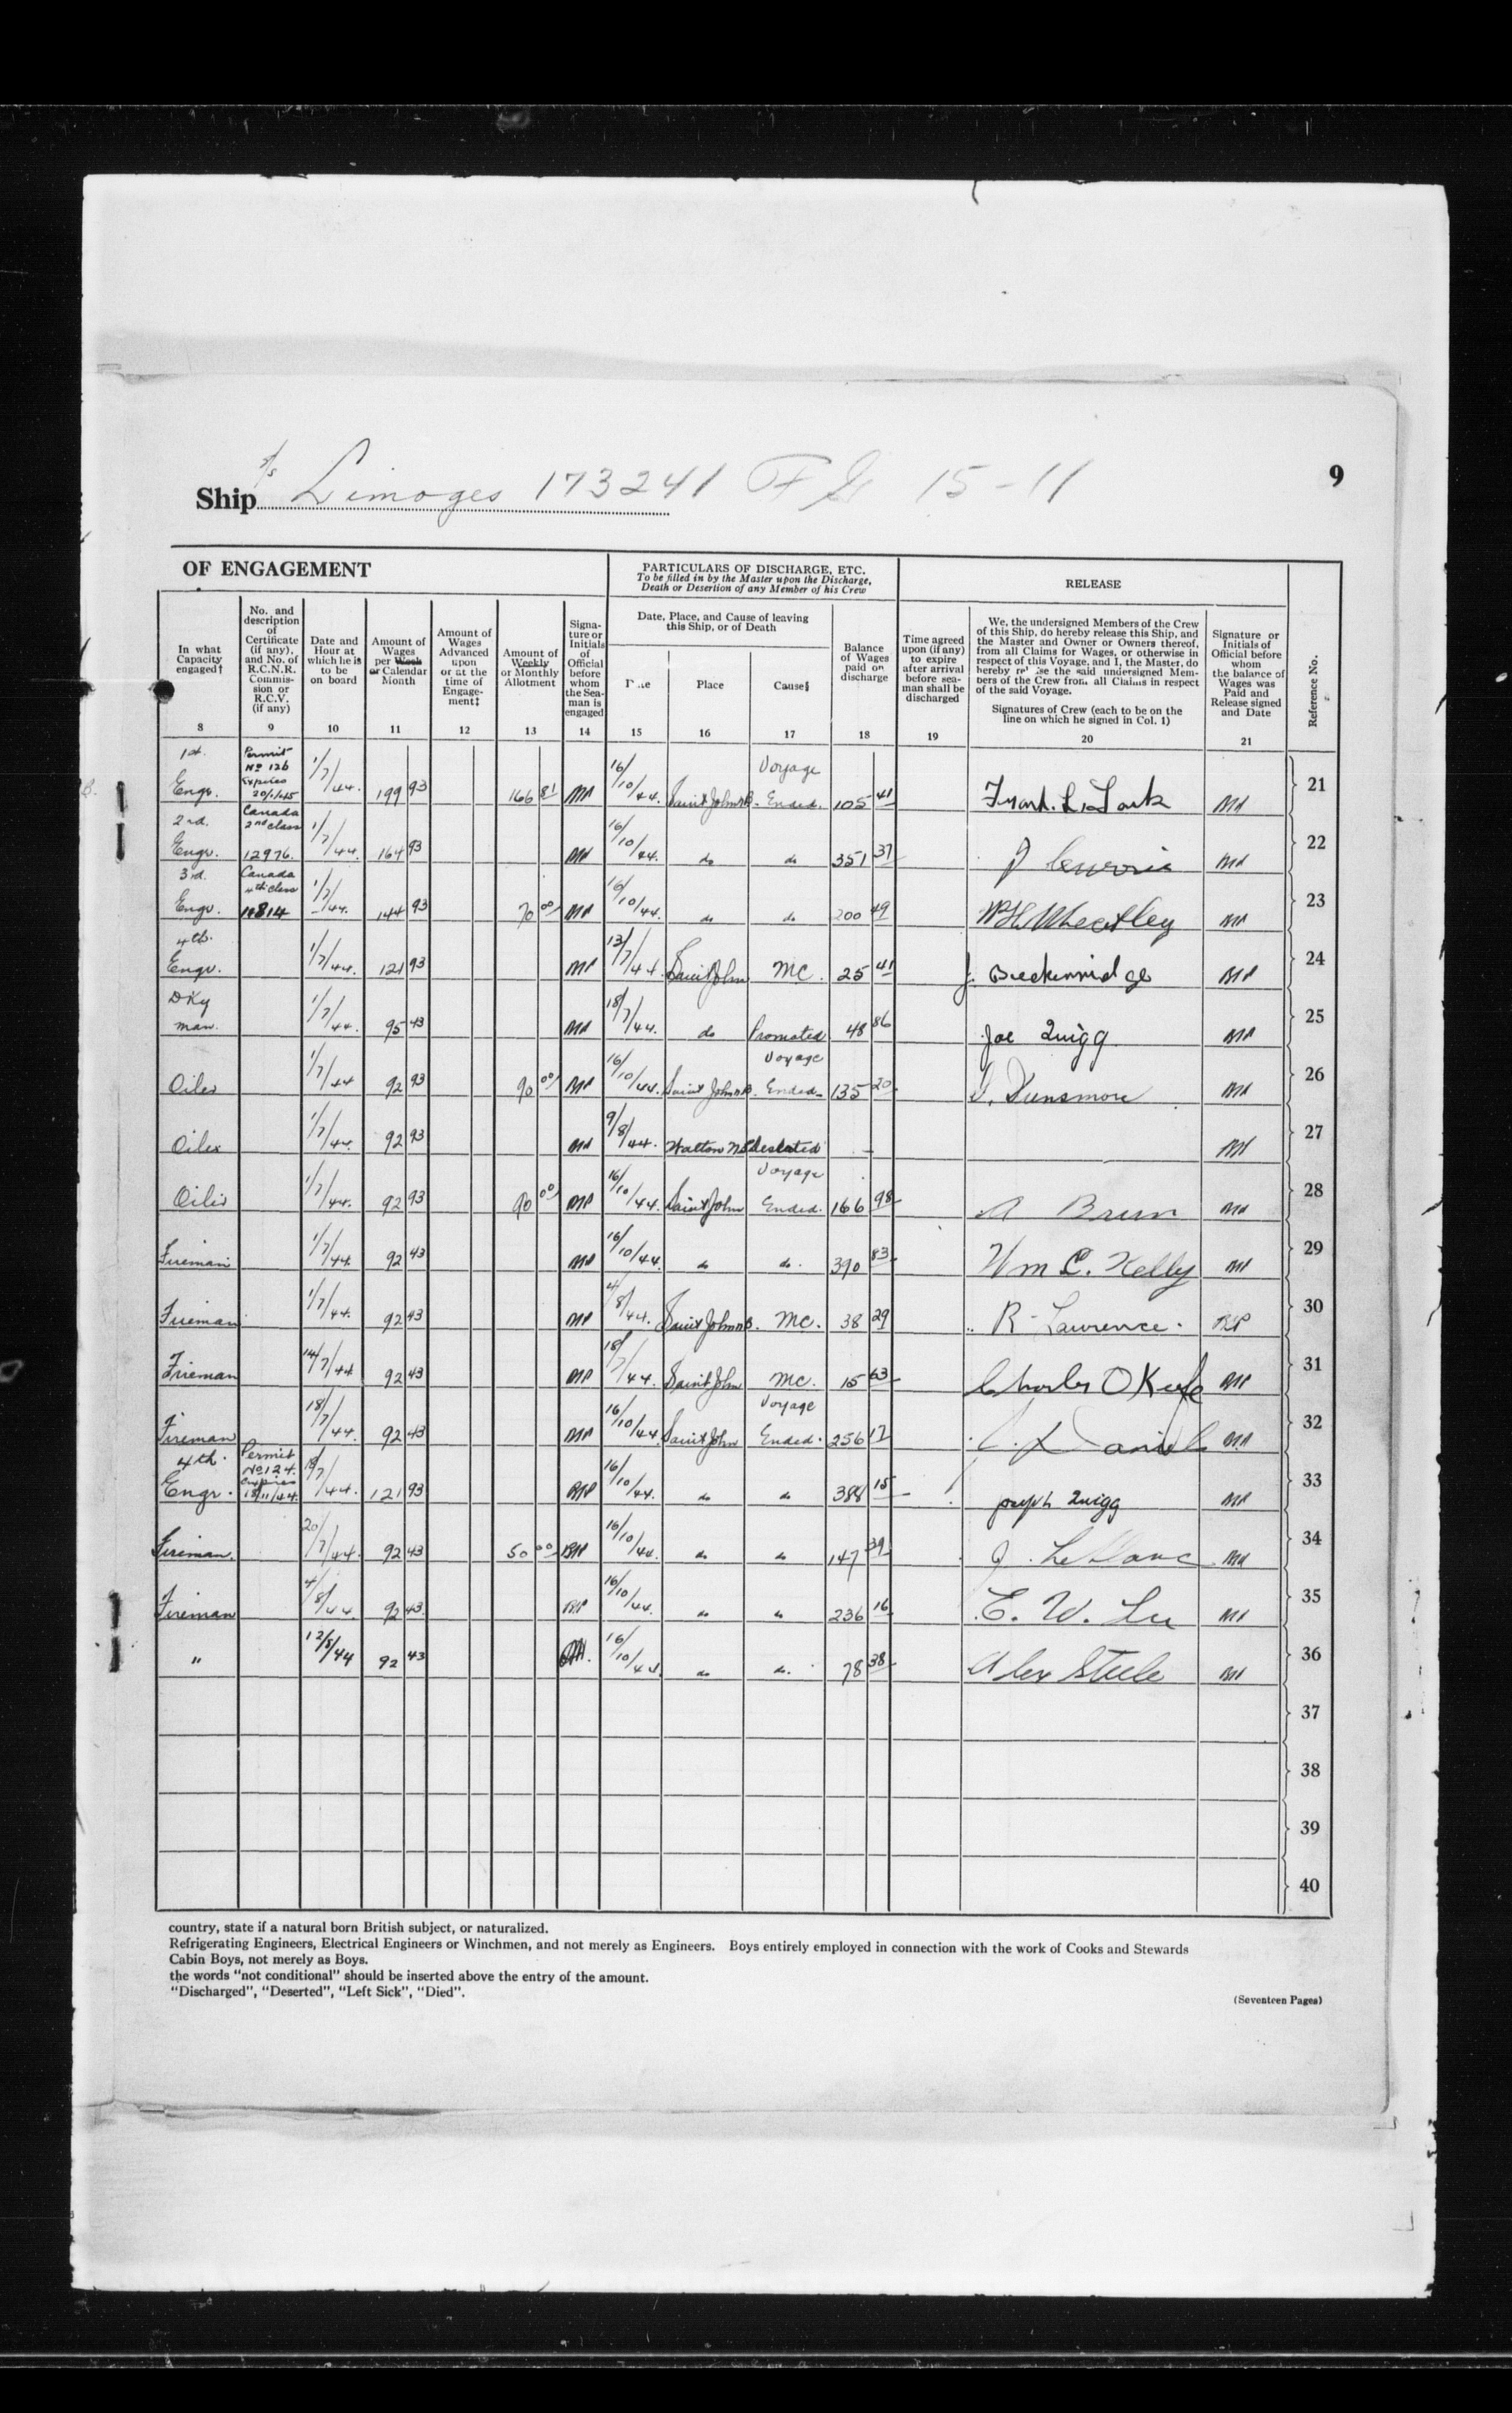 s/s
Ship Limoges 173241 15-11
9
OF ENGAGEMENT
PARTICULARS OF DISCHARGE, ETC.
To be filled in by the Master upon the Discharge,
Death or Desertion of any Member of his Crew
RELEASE
In what
Capacity
engaged†
8
No. and
description
of
Certificate
(if any),
and No. of
R.C.N.R.
Commis-
sion or
R.C.V.
(if any)
9
Date and
Hour at
which he is
to be
on board
10
Amount of
Wages
per Week
or Calendar
Month
11
Amount of
Wages
Advanced
upon
or at the
time of
Engage-
ment‡
12
Amount of
Weekly
or Monthly
Allotment
13
Signa-
ture or
Initials
of
Official
before
whom
the Sea-
man is
engaged
14
Date, Place, and Cause of leaving
this Ship, or of Death
15
Place
16
Cause§
17
Balance
of Wages
paid on
discharge
18
Time agreed
upon (if any)
to expire
after arrival
before sea-
man shall be
discharged
19
We, the undersigned Members of the Crew
of this Ship, do hereby release this Ship, and
the Master and Owner or Owners thereof,
from all Claims for Wages, or otherwise in
respect of this Voyage, and I, the Master, do
hereby the said undersigned Mem-
bers of the Crew from all Claims in respect
of the said Voyage.
Signatures of Crew (each to be on the
line on which he signed in Col. 1)
20
Signature or
Initials of
Official before
whom
the balance of
Wages was
Paid and
Release signed
and Date
21
Reference No.
1st. Engr. Permit No 126 Expires 20/1/45 1/7/44. 199 93 166 81 16/10/44. Saint John NB. Voyage Ended. 105 41 Frank. L. 21
2nd. Engr. Canada 2nd class 12976. 1/7/44. 164 93 16/10/44. do do 351 37 J 22
3rd. Engr. Canada 4th class 10814 1/7/44. 144 93 70 00 16/10/44. do do 200 49 W H Wheatley 23
4th. Engr. 1/7/44. 121 93 13/7/44. Saint John MC. 25 41 J. Breckenridge 24
DKy man. 1/7/44. 95 43 18/7/44. do Promoted 48 86 Joe Quigg 25
Oiler 1/7/44 92 93 90 00 16/10/44. Saint John NB. Voyage Ended. 135 20 Dunsmore 26
Oiler 1/7/44. 92 93 9/8/44. Walton NS deserted 27
Oiler 1/7/44. 92 93 90 00 16/10/44. Saint John Voyage Ended. 166 98 A 28
Fireman 1/7/44. 92 43 16/10/44. do do. 390 83 Wm C. Kelly 29
Fireman 1/7/44. 92 43 4/8/44. Saint John NB. MC. 38 29 R Lawrence. 30
Fireman 14/7/44 92 43 18/7/44. Saint John MC. 15 63 Charles OKeefe 31
Fireman 18/7/44. 92 43 16/10/44 Saint John Voyage Ended. 256 17 Daniels 32
4th. Engr. Permit No 124. expires 18/11/44. 18/7/44. 121 93 16/10/44. do do 388 15 Joseph Quigg 33
Fireman. 20/7/44. 92 43 50 00 16/10/44. do do 147 39 J. LeBlanc 34
Fireman 4/8/44 92 43 16/10/44. do do 236 16 E. W. 35
" 12/8/44 92 43 16/10/44. do do. 78 38 Alex Steele 36
37
38
39
40
country, state if a natural born British subject, or naturalized.
Refrigerating Engineers, Electrical Engineers or Winchmen, and not merely as Engineers. Boys entirely employed in connection with the work of Cooks and Stewards
Cabin Boys, not merely as Boys.
the words "not conditional" should be inserted above the entry of the amount.
"Discharged", "Deserted", "Left Sick", "Died".
(Seventeen Pages)